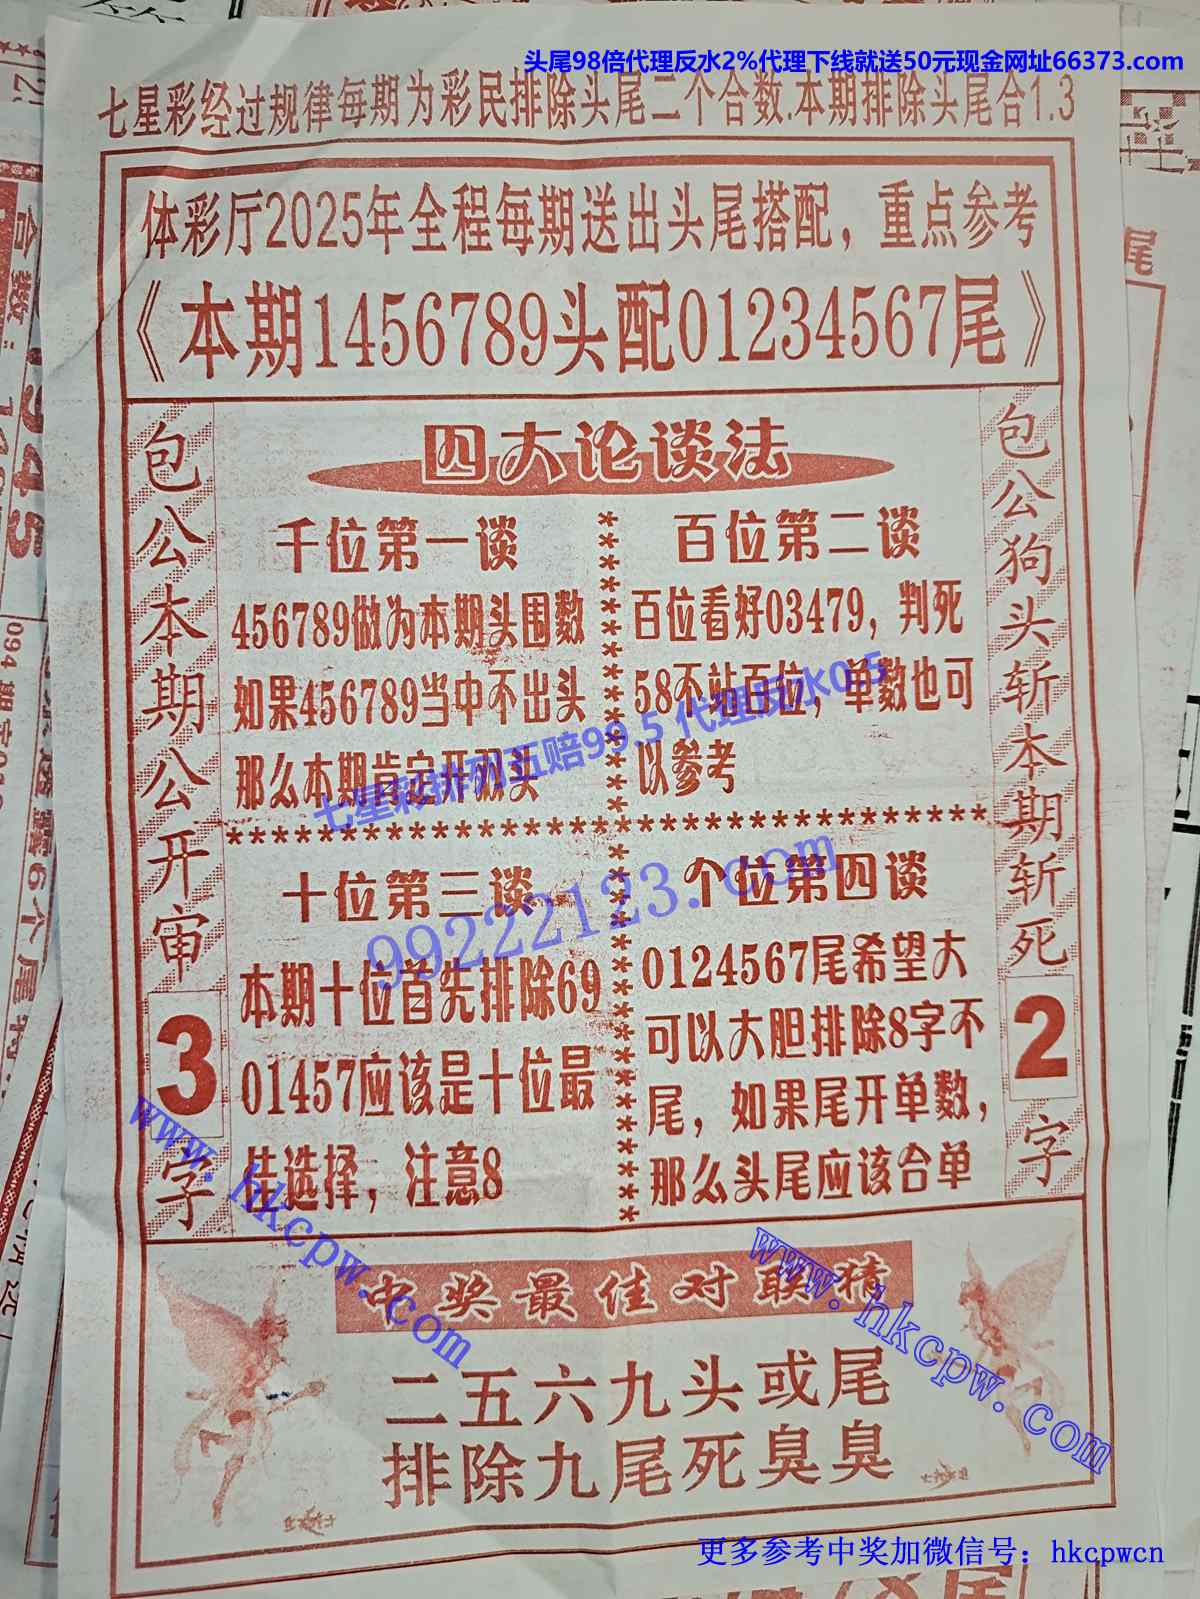 头尾98倍代理反水2%代理下线就送50元现金网址66373.com
七星彩经过规律每期为彩民排除头尾二个合数.本期排除头尾合1.3
体彩厅2025年全程每期送出头尾搭配，重点参考
《本期1456789头配01234567尾》
包公本期公开审3字
四大论谈法
千位第一谈
456789做为本期头围数
如果456789当中不出头
那么本期肯定开双头
百位第二谈
百位看好03479，判死
58不站百位，单数也可
以参考
七星彩排列五赔99.5 代理反水0.5
99222123.com
十位第三谈
本期十位首先排除69
01457应该是十位最
佳选择，注意8
个位第四谈
0124567尾希望大
可以大胆排除8字不
尾，如果尾开单数，
那么头尾应该合单
包公狗头斩本期斩死2字
www.hkcpw.com
www.hkcpw.com
中奖最佳对联猜
二五六九头或尾
排除九尾死臭臭
更多参考中奖加微信号：hkcpwcn